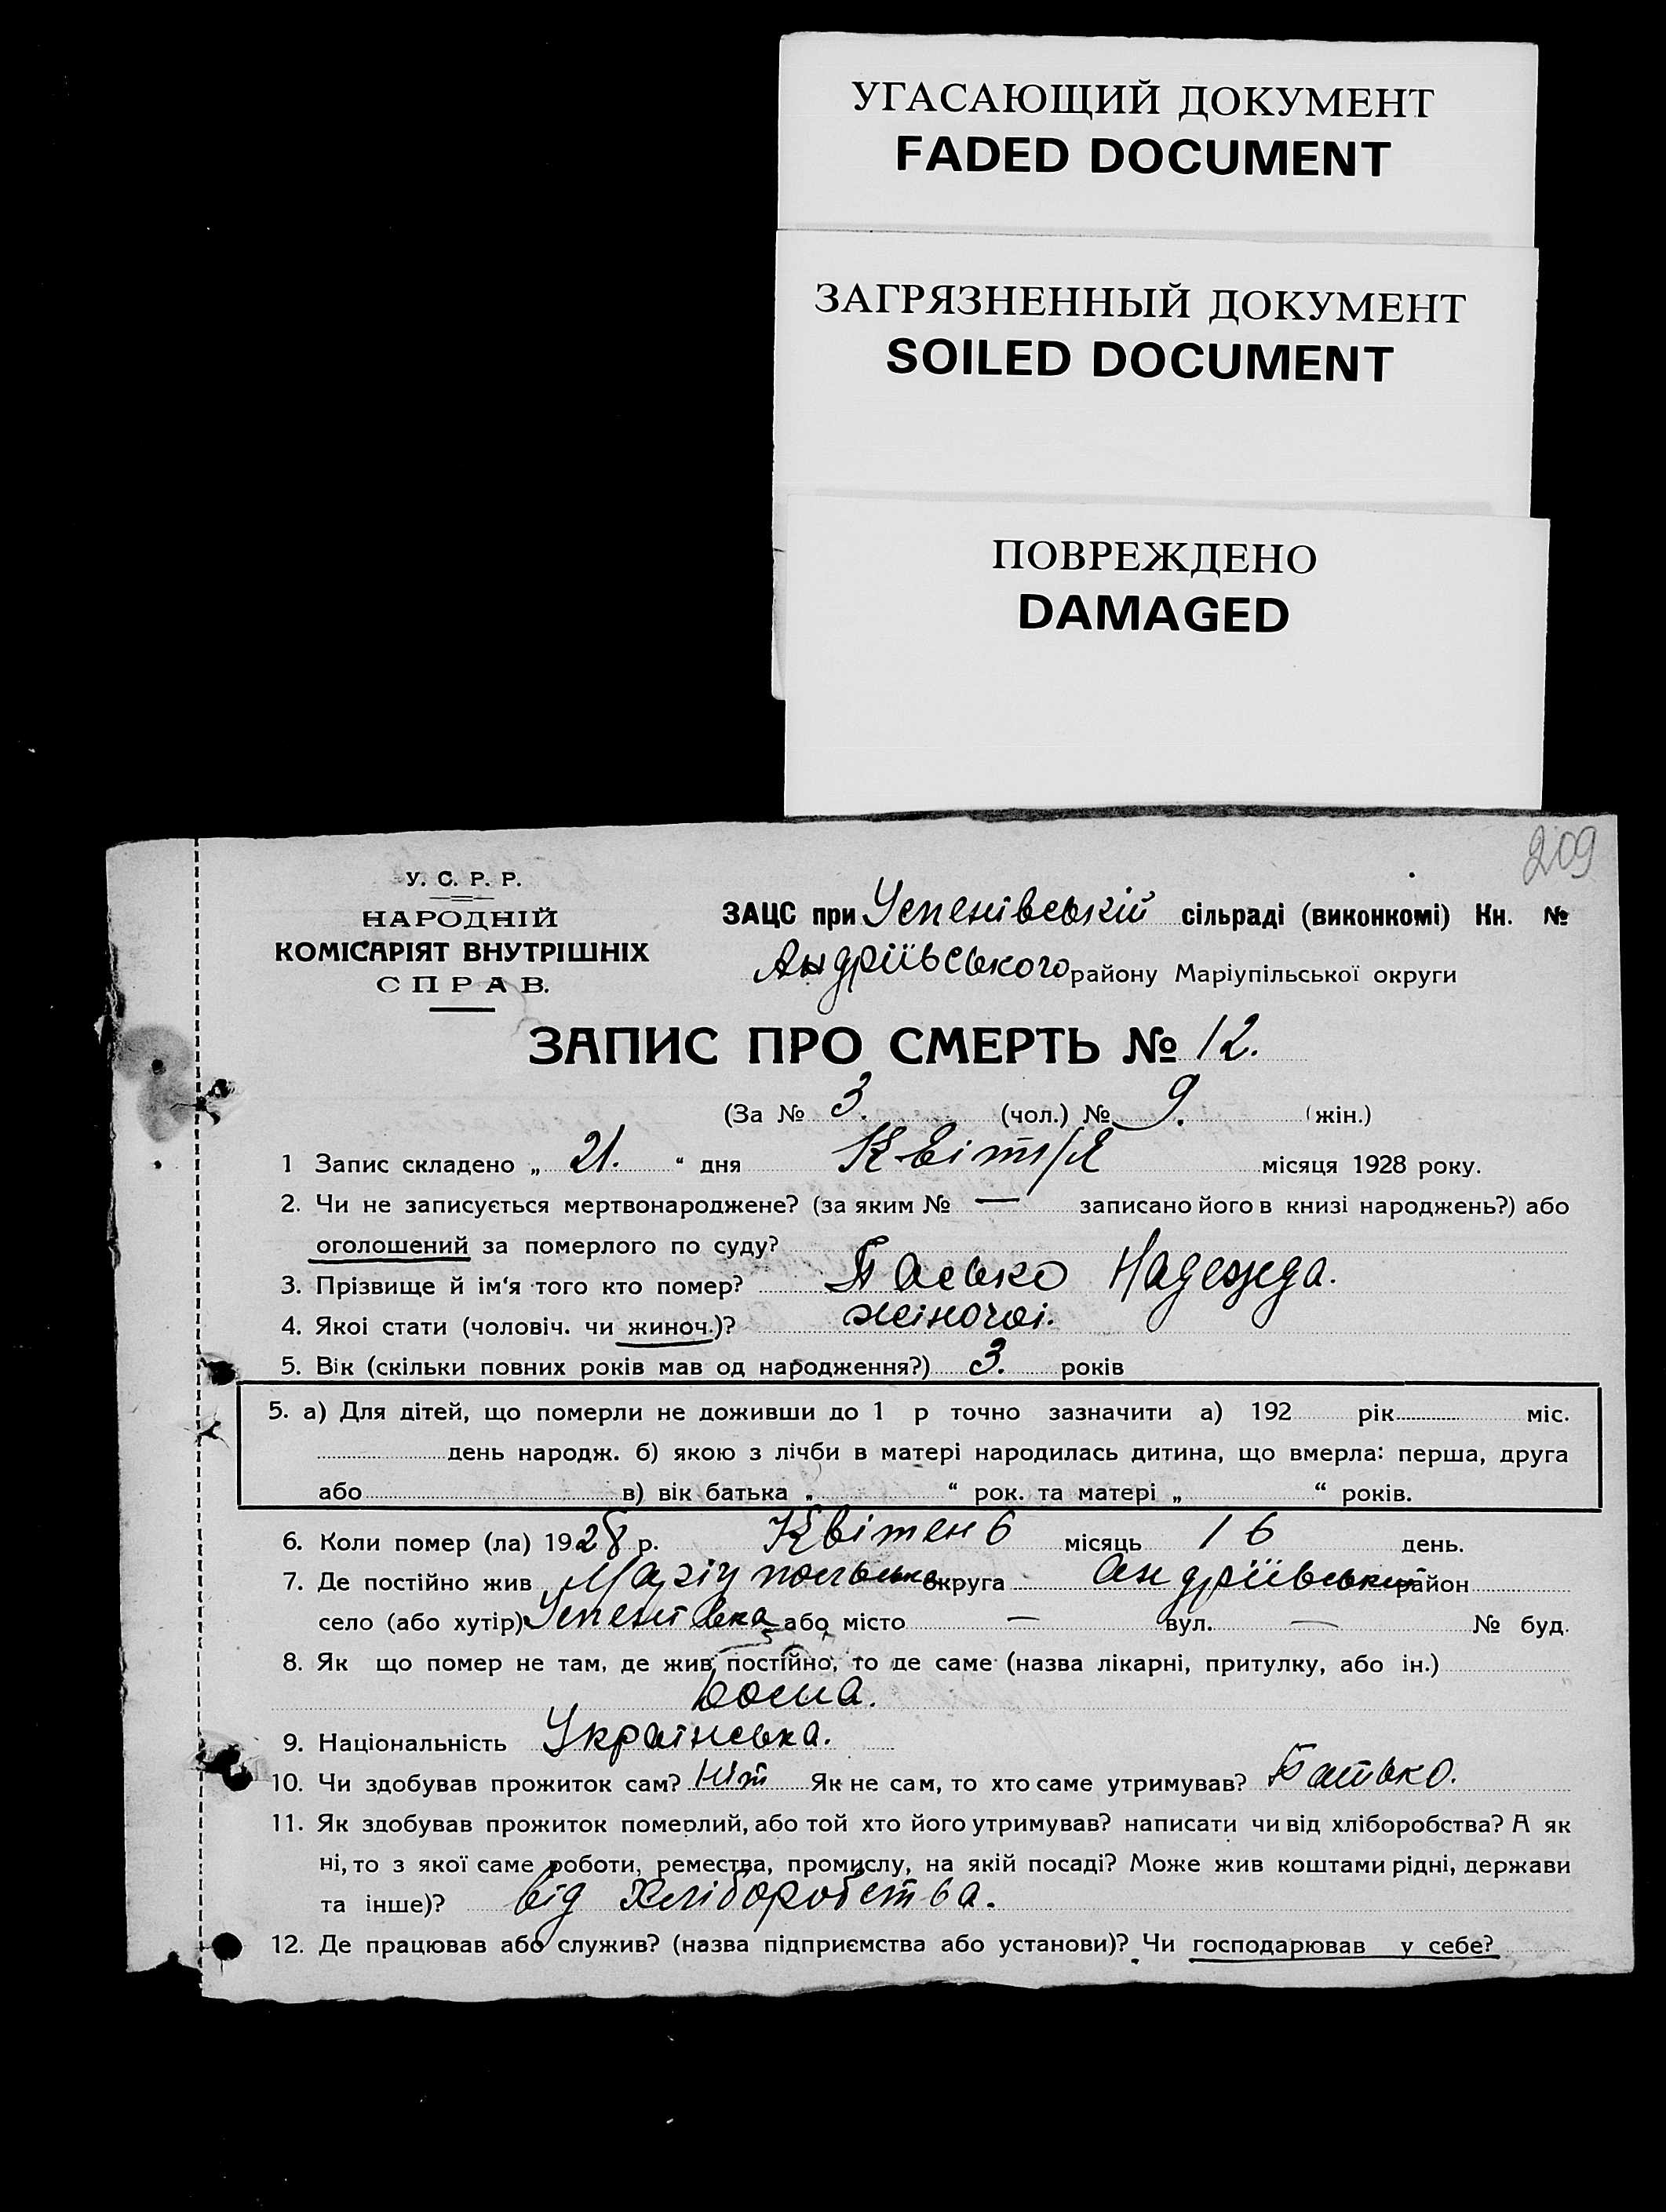 УГАСАЮЩИЙ ДОКУМЕНТ
FADED DOCUMENT
ЗАГРЯЗНЕННЫЙ ДОКУМЕНТ
SOILED DOCUMENT
ПОВРЕЖДЕНО
DAMAGED
209
У. С. Р. Р.
НАРОДНІЙ
КОМІСАРІЯТ ВНУТРІШНІХ
СПРАВ.
ЗАЦС при Успенівській сільраді (виконкомі) Кн. №
Андріївського району Маріупільської округи
ЗАПИС ПРО СМЕРТЬ № 12.
(За № 3. (чол.) № 9. (жін.)
1 Запис складено „ 21. “ дня Квітня місяця 1928 року.
2. Чи не записується мертвонароджене? (за яким № — записано його в книзі народжень?) або
оголошений за померлого по суду?
3. Прізвище й ім‘я того кто помер? Пасько Надежда.
4. Якоі стати (чоловіч. чи жиноч.)? жіночоі.
5. Вік (скільки повних років мав од народження?) 3. років
5. а) Для дітей, що померли не доживши до 1 р точно зазначити а) 192 рік міс.
день народж. б) якою з лічби в матері народилась дитина, що вмерла: перша, друга
або в) вік батька „ “ рок. та матері „ “ років.
6. Коли помер (ла) 1928 р. Квітень місяць 16 день.
7. Де постійно жив Маріупольська округа Андріївський район
село (або хутір) Успенівка або місто — вул. — № буд.
8. Як що помер не там, де жив постійно, то де саме (назва лікарні, притулку, або ін.)
9. Національність Українська.
10. Чи здобував прожиток сам? Ніт Як не сам, то хто саме утримував? Батько.
11. Як здобував прожиток померлий, або той хто його утримував? написати чи від хліборобства? А як
ні, то з якої саме роботи, ремества, промислу, на якій посаді? Може жив коштами рідні, держави
та інше)? від хліборобства.
12. Де працював або служив? (назва підприємства або установи)? Чи господарював у себе?